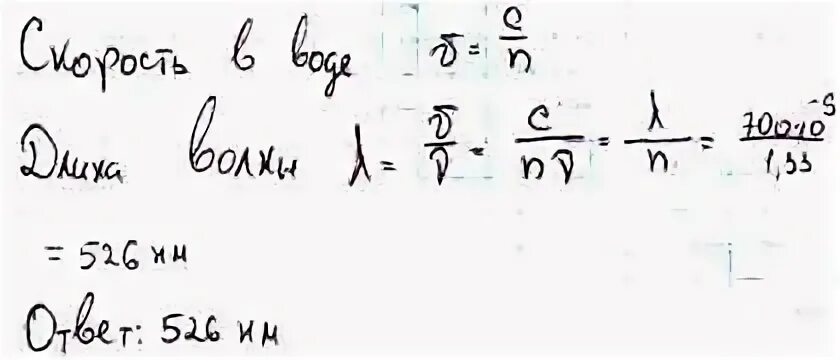 Скорость в воде v = c/n
Длина волны λ = v/ν = c/nν = λ/n = 700·10^-9/1,33
= 526 нм
Ответ: 526 нм